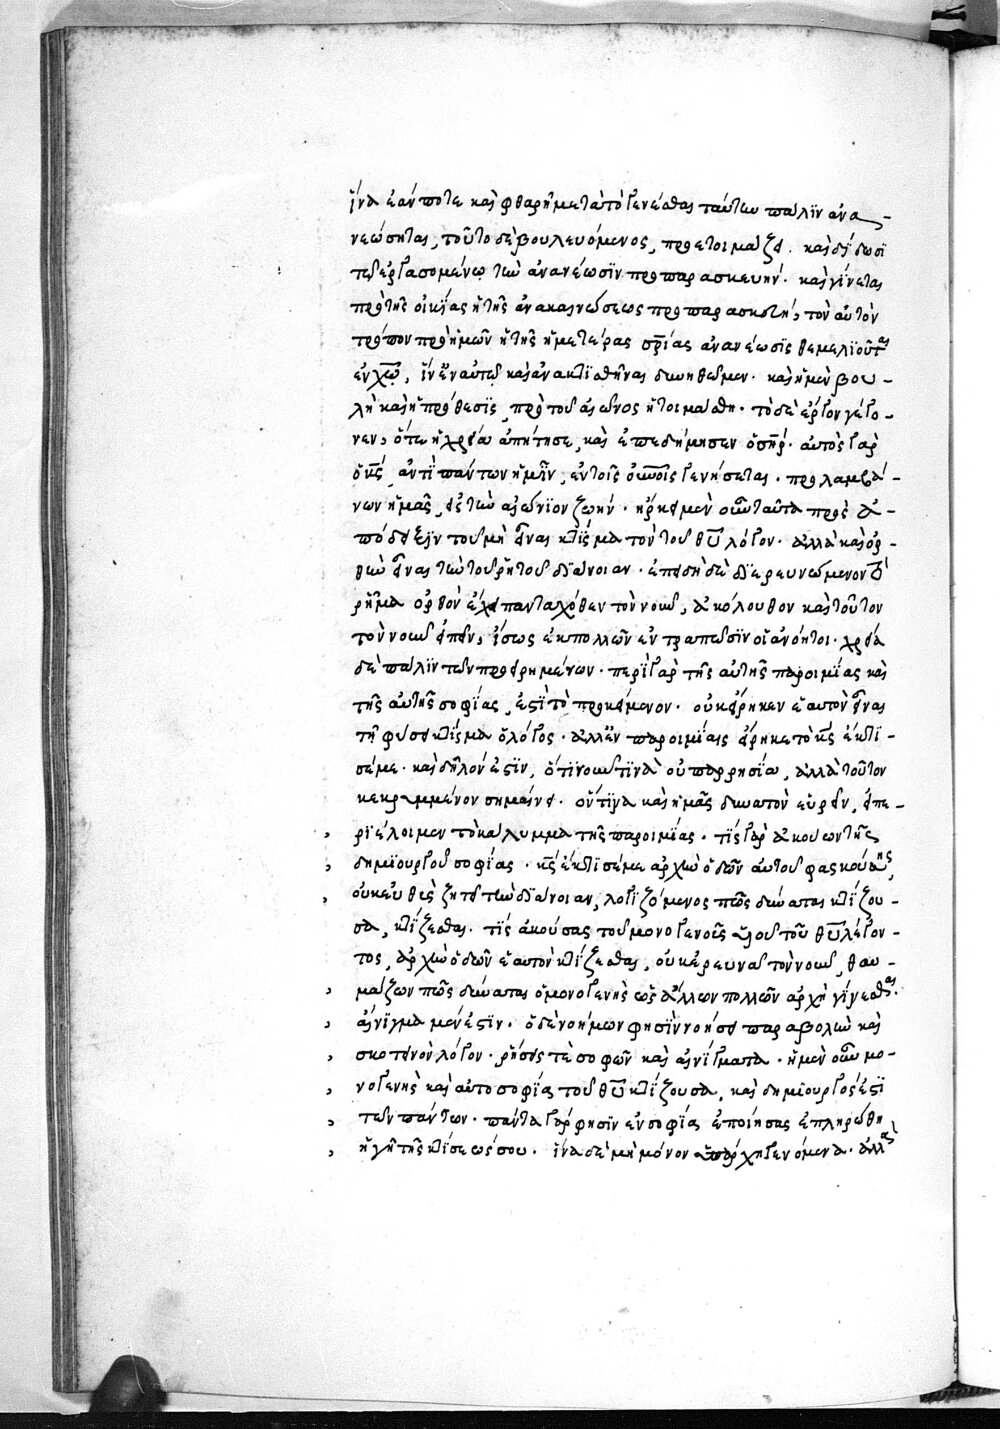 ἵνα ἐάν ποτε καὶ φθαρῇ μετὰ τὸ γενέσθαι ταύτην πάλϊν ἀνα-
νεώσηται, τοῦτο δὲ βουλευόμενος, προετοιμάζει. καὶ δίδωσι
τῷ ἐργασομένῳ τὴν ἀνανέωσϊν προπαρασκευήν· καὶ γίνεται
πρὸ τῆς οἰκίας ἡ τῆς ἀνακαινώσεως προπαρασκευή, τὸν αὐτὸν
τρόπον πρὸ ἡμῶν ἡ τῆς ἡμετέρας σρίας ἀνανέωσϊς θεμελϊοῦται
ἐν χω, ἵν' ἐν αὐτῷ καὶ ἀνακτϊσθῆναι δυνηθῶμεν· καὶ ἡ μὲν βου-
λὴ καὶ ἡ πρόθεσϊς, πρὸ τοῦ αἰῶνος ἡτοιμάσθη· τὸ δὲ ἔργον γέγο-
νεν, ὅτε ἡ χρεία ἀπῄτησε, καὶ ἐπεδήμησεν ὁ σηρ· αὐτὸς γὰρ
ὁ κς, ἀντὶ πάντων ἡμῖν, ἐν τοῖς οὐνοῖς γενήσεται· προσλαμβά-
νων ἡμᾶς, εἰς τὴν αἰώνϊον ζωήν· ἤρκει μὲν οὖν ταῦτα πρὸς ἀ-
πόδειξϊν τοῦ μὴ εἶναι κτίσμα τὸν τοῦ θυ λόγον· ἀλλὰ καὶ ὀρ-
θὴν εἶναι τὴν τοῦ ῥητοῦ δϊάνοιαν· ἐπειδὴ δὲ δϊερευνώμενον τὸ
ῥῆμα ὀρθὸν ἔχει πανταχόθεν τὸν νοῦν, ἀκόλουθον καὶ τοῦτον
τὸν νοῦν εἰπεῖν, ἴσως ἐκ πολλῶν ἐντραπῶσϊν οἱ ἀνόητοι· χρεία
δὲ πάλϊν τῶν προειρημένων· περὶ γὰρ τῆς αὐτῆς παροιμίας καὶ
τῆς αὐτῆς σοφίας, ἐστὶ τὸ προκείμενον· οὐκ εἴρηκεν ἑαυτὸν εἶναι
τῇ φύσει κτίσμα ὁ λόγος· ἀλλ' ἐν παροιμίαις εἴρηκε τὸ κς ἔκτι-
σέ με· καὶ δῆλόν ἐστϊν, ὅτϊ νοῦν τϊνὰ οὐ παρρησίᾳ, ἀλλὰ τοῦτον
κεκρυμμένον σημαίνει· ὅντϊνα καὶ ἡμᾶς δυνατὸν εὑρεῖν, εἰ πε-
ρϊέλοιμεν τὸ κάλυμμα τῆς παροιμίας· τίς γὰρ ἀκούων τῆς
δημϊουργοῦ σοφίας· κς ἔκτϊσέ με ἀρχὴν ὁδῶν αὐτοῦ φασκούσης,
οὐκ εὐθὺς ζητεῖ τὴν δϊάνοιαν, λογϊζόμενος πῶς δύναται κτίζου-
σα, κτίζεσθαι· τίς ἀκούσας τοῦ μονογενοῦς υἱοῦ τοῦ θυ λέγον-
τος, ἀρχὴν ὁδῶν ἑαυτὸν κτίζεσθαι, οὐκ ἐρευνᾷ τὸν νοῦν, θαυ-
μάζων πῶς δύναται ὁ μονογενὴς υς ἄλλων πολλῶν ἀρχὴ γίνεσθαι·
αἴνϊγμα μέν ἐστϊν· ὁ δὲ νοήμων φησὶν νοήσει παραβολὴν καὶ
σκοτεινὸν λόγον· ῥήσεις τὲ σοφῶν καὶ αἰνίγματα· ἡ μὲν οὖν μο-
νογενὴς καὶ αὐτοσοφία τοῦ θυ κτίζουσα, καὶ δημϊουργός ἐστϊ
τῶν πάντων· πάντα γάρ φησϊν ἐν σοφίᾳ ἐποίησας ἐπληρώθη
ἡ γῆ τῆς κτίσεώς σου· ἵνα δὲ μὴ μόνον ὑπάρχῃ γενόμενα· ἀλλὰ